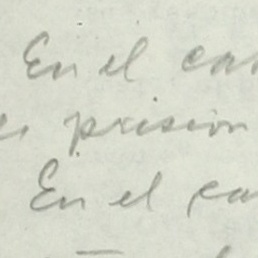 En el ca
prision
En el ca